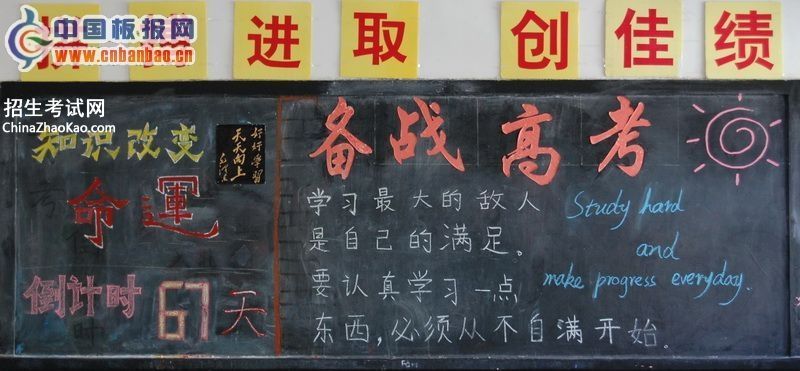 进取 创佳绩
中国板报网
www.cnbanbao.cn
招生考试网
ChinaZhaoKao.com
知识改变
命運
好好学習
天天向上
倒计时67天
备战高考
学习最大的敌人
是自己的满足。
要认真学习一点
东西,必须从不自满开始。
Study hard
and
make progress everyday.